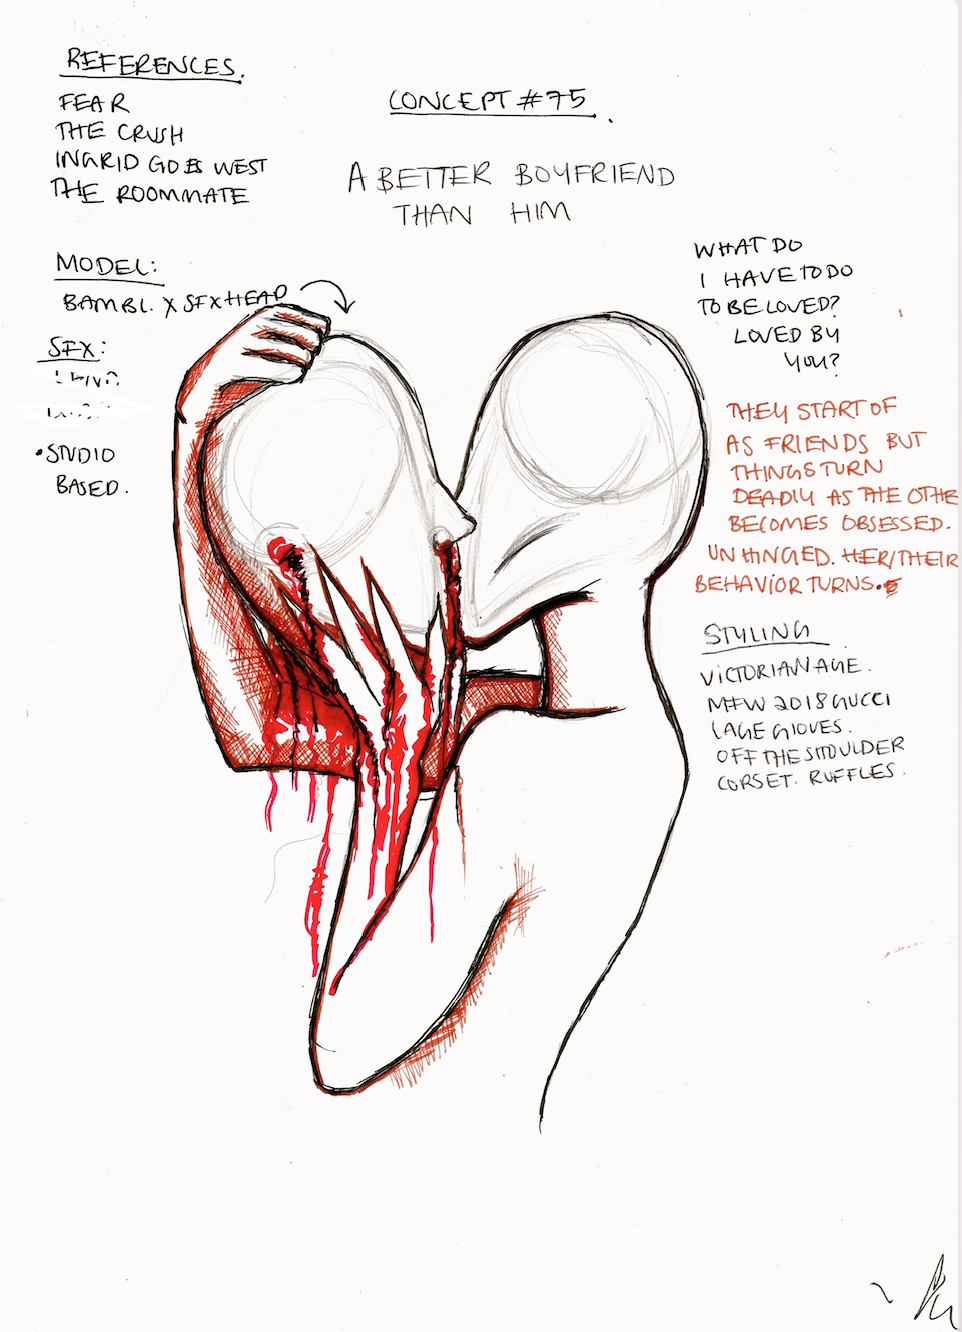 REFERENCES.
FEAR
THE CRUSH
INGRID GOES WEST
THE ROOMMATE
CONCEPT #75.
A BETTER BOYFRIEND
THAN HIM
MODEL:
BAMBI. X SFX HEAD
SFX:
•STUDIO
BASED.
WHAT DO
I HAVE TO DO
TO BE LOVED?
LOVED BY
YOU?
THEY START OF
AS FRIENDS BUT
THINGS TURN
DEADLY AS THE OTHE
BECOMES OBSESSED.
UNHINGED. HER/THEIR
BEHAVIOR TURNS.
STYLING
VICTORIAN AGE.
MFW 2018 GUCCI
LACE GLOVES.
OFF THE SHOULDER
CORSET. RUFFLES.